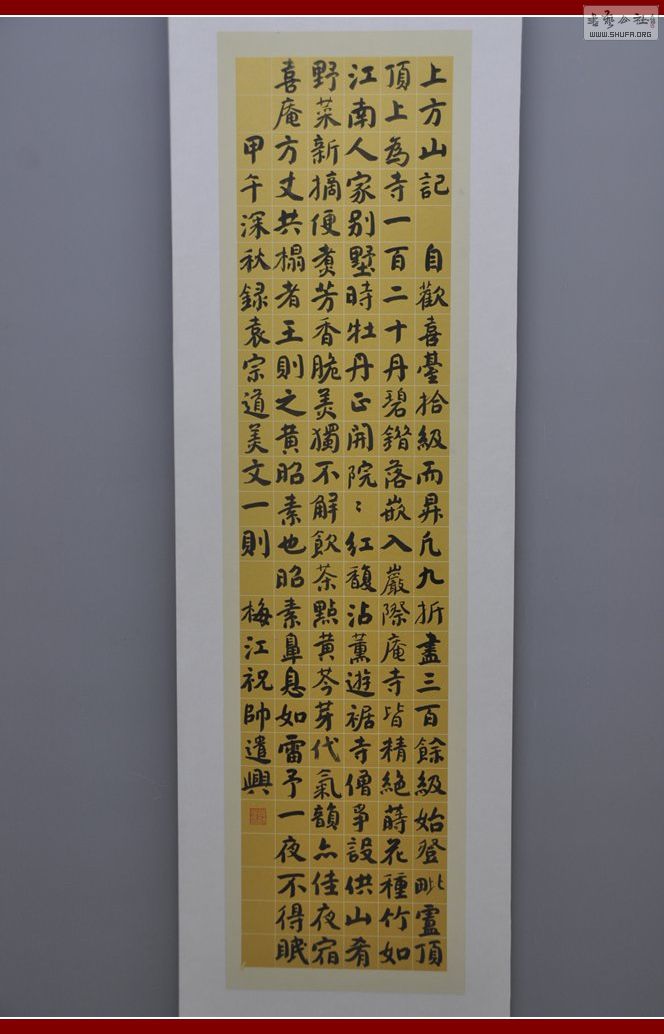 上方山記　自歡喜臺拾級而昇凡九折盡三百餘級始登毗盧頂
頂上為寺一百二十丹碧錯落嵌入巖際庵寺皆精絕蒔花種竹如
江南人家別墅時牡丹正開院〻紅馥沾薰遊裾寺僧爭設供山肴
野菜新摘便煑芳香脆美獨不解飲茶點黃芩芽代氣韻亦佳夜宿
喜庵方丈共榻者王則之黃昭素也昭素鼻息如雷予一夜不得眠
甲午深秋録袁宗道美文一則　梅江祝帥遣興
書藝公社
WWW.SHUFA.ORG